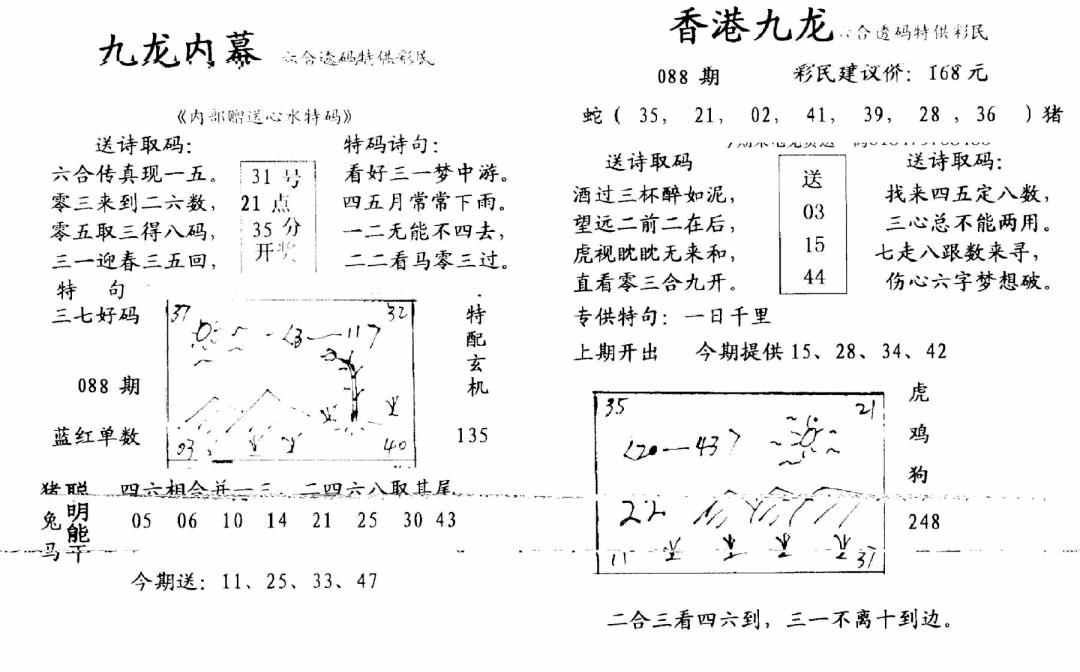 九龙内幕 六合透码特供彩民
《内部赠送心水特码》
送诗取码：
六合传真现一五。
零三来到二六数，
零五取三得八码，
三一迎春三五回，
31 号
21 点
35 分
开奖
特码诗句：
看好三一梦中游。
四五月常常下雨。
一二无能不四去，
二二看马零三过。
特 句
三七好码
088 期
蓝红单数
37 32
23—117
03 40
特配玄机
135
猪 聪 四六相合并一三 二四六八取其尾
兔 明 05 06 10 14 21 25 30 43
马 能干
今期送：11、25、33、47
香港九龙 六合透码特供彩民
088 期 彩民建议价：168 元
蛇（ 35, 21, 02, 41, 39, 28 , 36 ）猪
送诗取码
酒过三杯醉如泥，
望远二前二在后，
虎视眈眈无来和，
直看零三合九开。
送
03
15
44
送诗取码：
找来四五定八数，
三心总不能两用。
七走八跟数来寻，
伤心六字梦想破。
专供特句：一日千里
上期开出 今期提供 15、28、34、42
35 21
20—43
22
11 37
虎
鸡
狗
248
二合三看四六到，三一不离十到边。